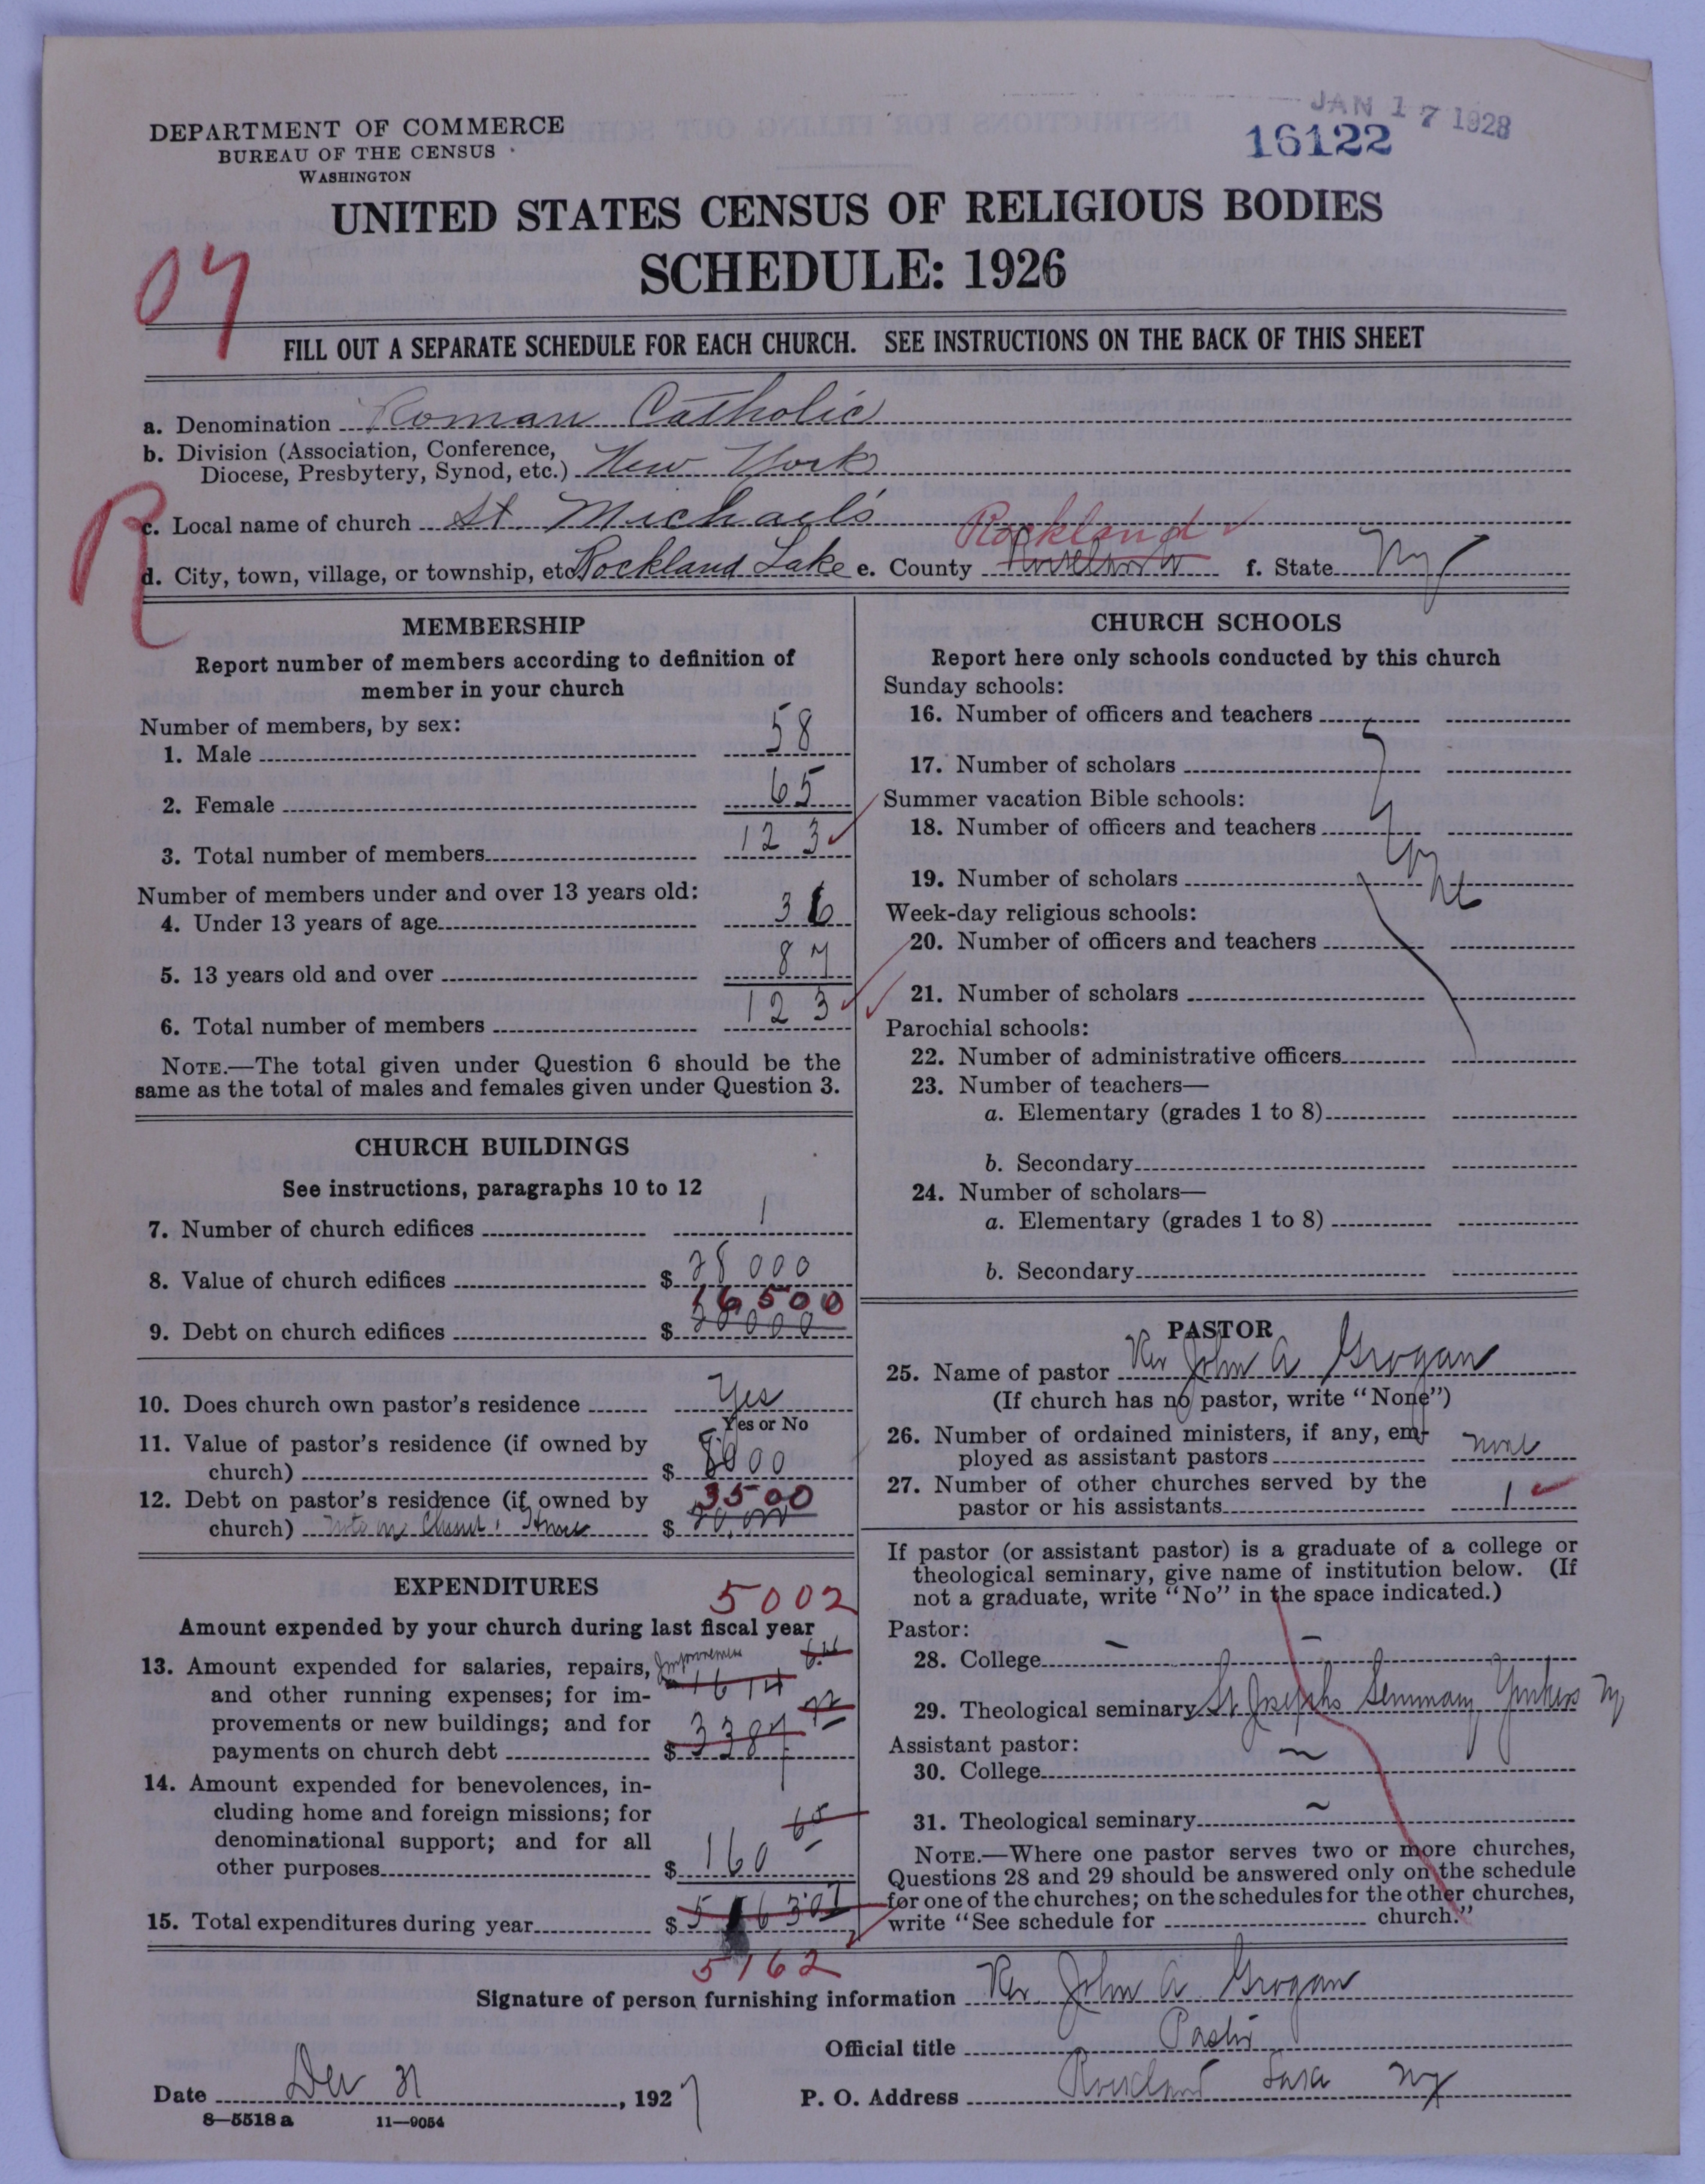 JAN 17 1928
16122
DEPARTMENT OF COMMERCE
BUREAU OF THE CENSUS
WASHINGTON
UNITED STATES CENSUS OF RELIGIOUS BODIES
SCHEDULE: 1926
FILL OUT A SEPARATE SCHEDULE FOR EACH CHURCH. SEE INSTRUCTIONS ON THE BACK OF THIS SHEET
a. Denomination Roman Catholic
b. Division (Association, Conference,
Diocese, Presbytery, Synod, etc.) New York
R
c. Local name of church St Michael's
Rockland
d. City, town, village, or township, etc. Rockland Lake e. County f. State Ny
MEMBERSHIP
Report number of members according to definition of
member in your church
Number of members, by sex:
1. Male 58
2. Female 65
3. Total number of members 123
Number of members under and over 13 years old:
4. Under 13 years of age 36
5. 13 years old and over 87
6. Total number of members 123
NOTE.—The total given under Question 6 should be the
same as the total of males and females given under Question 3.
CHURCH BUILDINGS
See instructions, paragraphs 10 to 12
7. Number of church edifices 1
8. Value of church edifices $ 28000
16500
9. Debt on church edifices $ 20000
10. Does church own pastor's residence Yes
Yes or No
11. Value of pastor's residence (if owned by
church) $ 8000
12. Debt on pastor's residence (if owned by 3500
church) $ 20,000
EXPENDITURES
5002
Amount expended by your church during last fiscal year
13. Amount expended for salaries, repairs, Improvements
and other running expenses; for im- 1614
provements or new buildings; and for
payments on church debt $ 3387
14. Amount expended for benevolences, in-
cluding home and foreign missions; for
denominational support; and for all
other purposes $ 160
15. Total expenditures during year $
5162
CHURCH SCHOOLS
Report here only schools conducted by this church
Sunday schools:
16. Number of officers and teachers
17. Number of scholars
Summer vacation Bible schools:
18. Number of officers and teachers
19. Number of scholars
Week-day religious schools:
20. Number of officers and teachers
21. Number of scholars
Parochial schools:
22. Number of administrative officers
23. Number of teachers—
a. Elementary (grades 1 to 8)
b. Secondary
24. Number of scholars—
a. Elementary (grades 1 to 8)
b. Secondary
PASTOR
25. Name of pastor Rev John A Grogan
(If church has no pastor, write "None")
26. Number of ordained ministers, if any, em-
ployed as assistant pastors none
27. Number of other churches served by the
pastor or his assistants 1
If pastor (or assistant pastor) is a graduate of a college or
theological seminary, give name of institution below. (If
not a graduate, write "No" in the space indicated.)
Pastor:
28. College
29. Theological seminary St Josephs Seminary Yonkers Ny
Assistant pastor:
30. College
31. Theological seminary
NOTE.—Where one pastor serves two or more churches,
Questions 28 and 29 should be answered only on the schedule
for one of the churches; on the schedules for the other churches,
write "See schedule for church."
Signature of person furnishing information Rev John A Grogan
Official title Pastor
Date Dec 31, 1927 P. O. Address Rockland Lake Ny
8—5518 a 11—9054